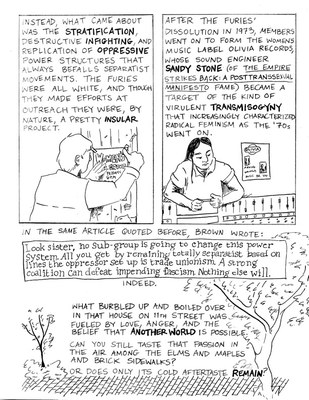 INSTEAD, WHAT CAME ABOUT
WAS THE STRATIFICATION,
DESTRUCTIVE INFIGHTING, AND
REPLICATION OF OPPRESSIVE
POWER STRUCTURES THAT
ALWAYS BEFALLS SEPARATIST
MOVEMENTS. THE FURIES
WERE ALL WHITE, AND THOUGH
THEY MADE EFFORTS AT
OUTREACH THEY WERE, BY
NATURE, A PRETTY INSULAR
PROJECT.
AFTER THE FURIES'
DISSOLUTION IN 1973, MEMBERS
WENT ON TO FORM THE WOMENS
MUSIC LABEL OLIVIA RECORDS,
WHOSE SOUND ENGINEER
SANDY STONE (OF THE EMPIRE
STRIKES BACK: A POSTTRANSSEXUAL
MANIFESTO FAME) BECAME A
TARGET OF THE KIND OF
VIRULENT TRANSMISOGYNY
THAT INCREASINGLY CHARACTERIZED
RADICAL FEMINISM AS THE '70s
WENT ON.
IN THE SAME ARTICLE QUOTED BEFORE, BROWN WROTE:
Look sister, no sub-group is going to change this power
system. All you get by remaining totally separatist based on
lines the oppressor set up is trade unionism. A strong
coalition can defeat impending fascism. Nothing else will.
INDEED.
WHAT BURBLED UP AND BOILED OVER
IN THAT HOUSE ON 11TH STREET WAS
FUELED BY LOVE, ANGER, AND THE
BELIEF THAT ANOTHER WORLD IS POSSIBLE.
CAN YOU STILL TASTE THAT PASSION IN
THE AIR AMONG THE ELMS AND MAPLES
AND BRICK SIDEWALKS?
OR DOES ONLY ITS COLD AFTERTASTE REMAIN?